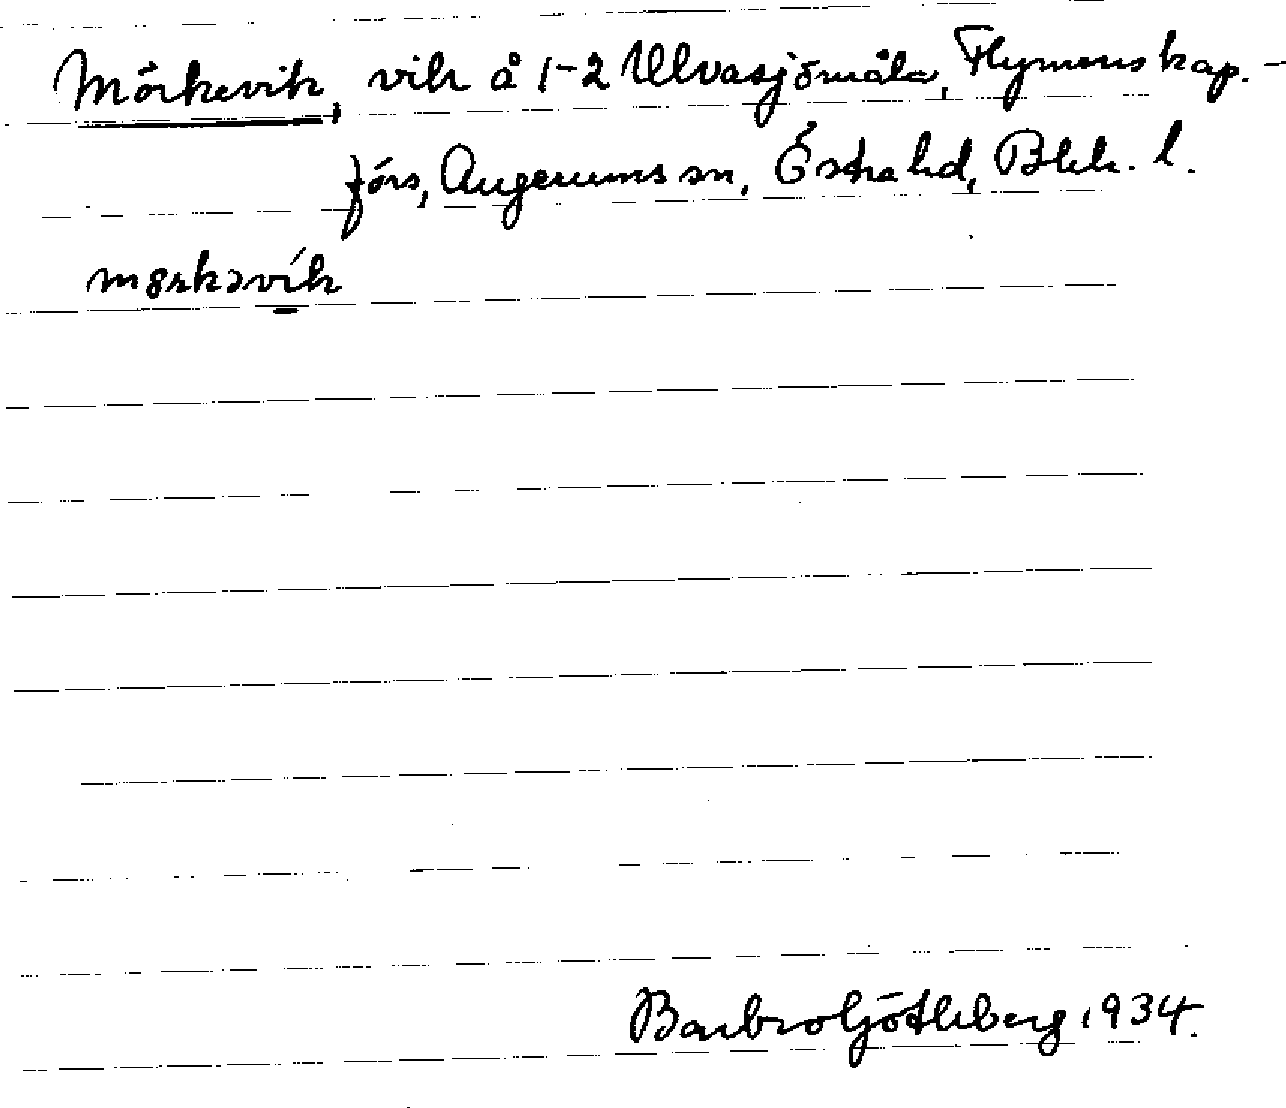 Mörkevik, vik å 1-2 Ulvasjömåla, Flymens kap.-
förs, Augerums sn, Östra hd, Blek. l.
mørkəvík
Barbro Götleberg 1934.